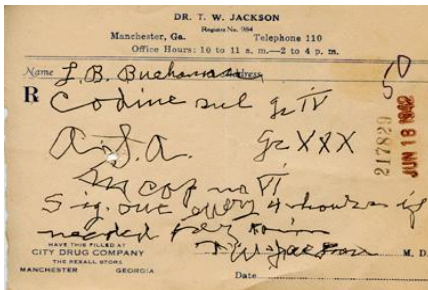 DR. T. W. JACKSON
Register No. 984
Manchester, Ga. Telephone 110
Office Hours: 10 to 11 a. m.—2 to 4 p. m.
Name L. B. Buchanan Address
50
R Codine sul gr IV
A.S.A. gr XXX
217829
JUN 18 1942
cap no VI
Sig. one every 4 hours if
needed for pain
T W Jackson M. D.
HAVE THIS FILLED AT
CITY DRUG COMPANY
THE REXALL STORE
MANCHESTER GEORGIA
Date